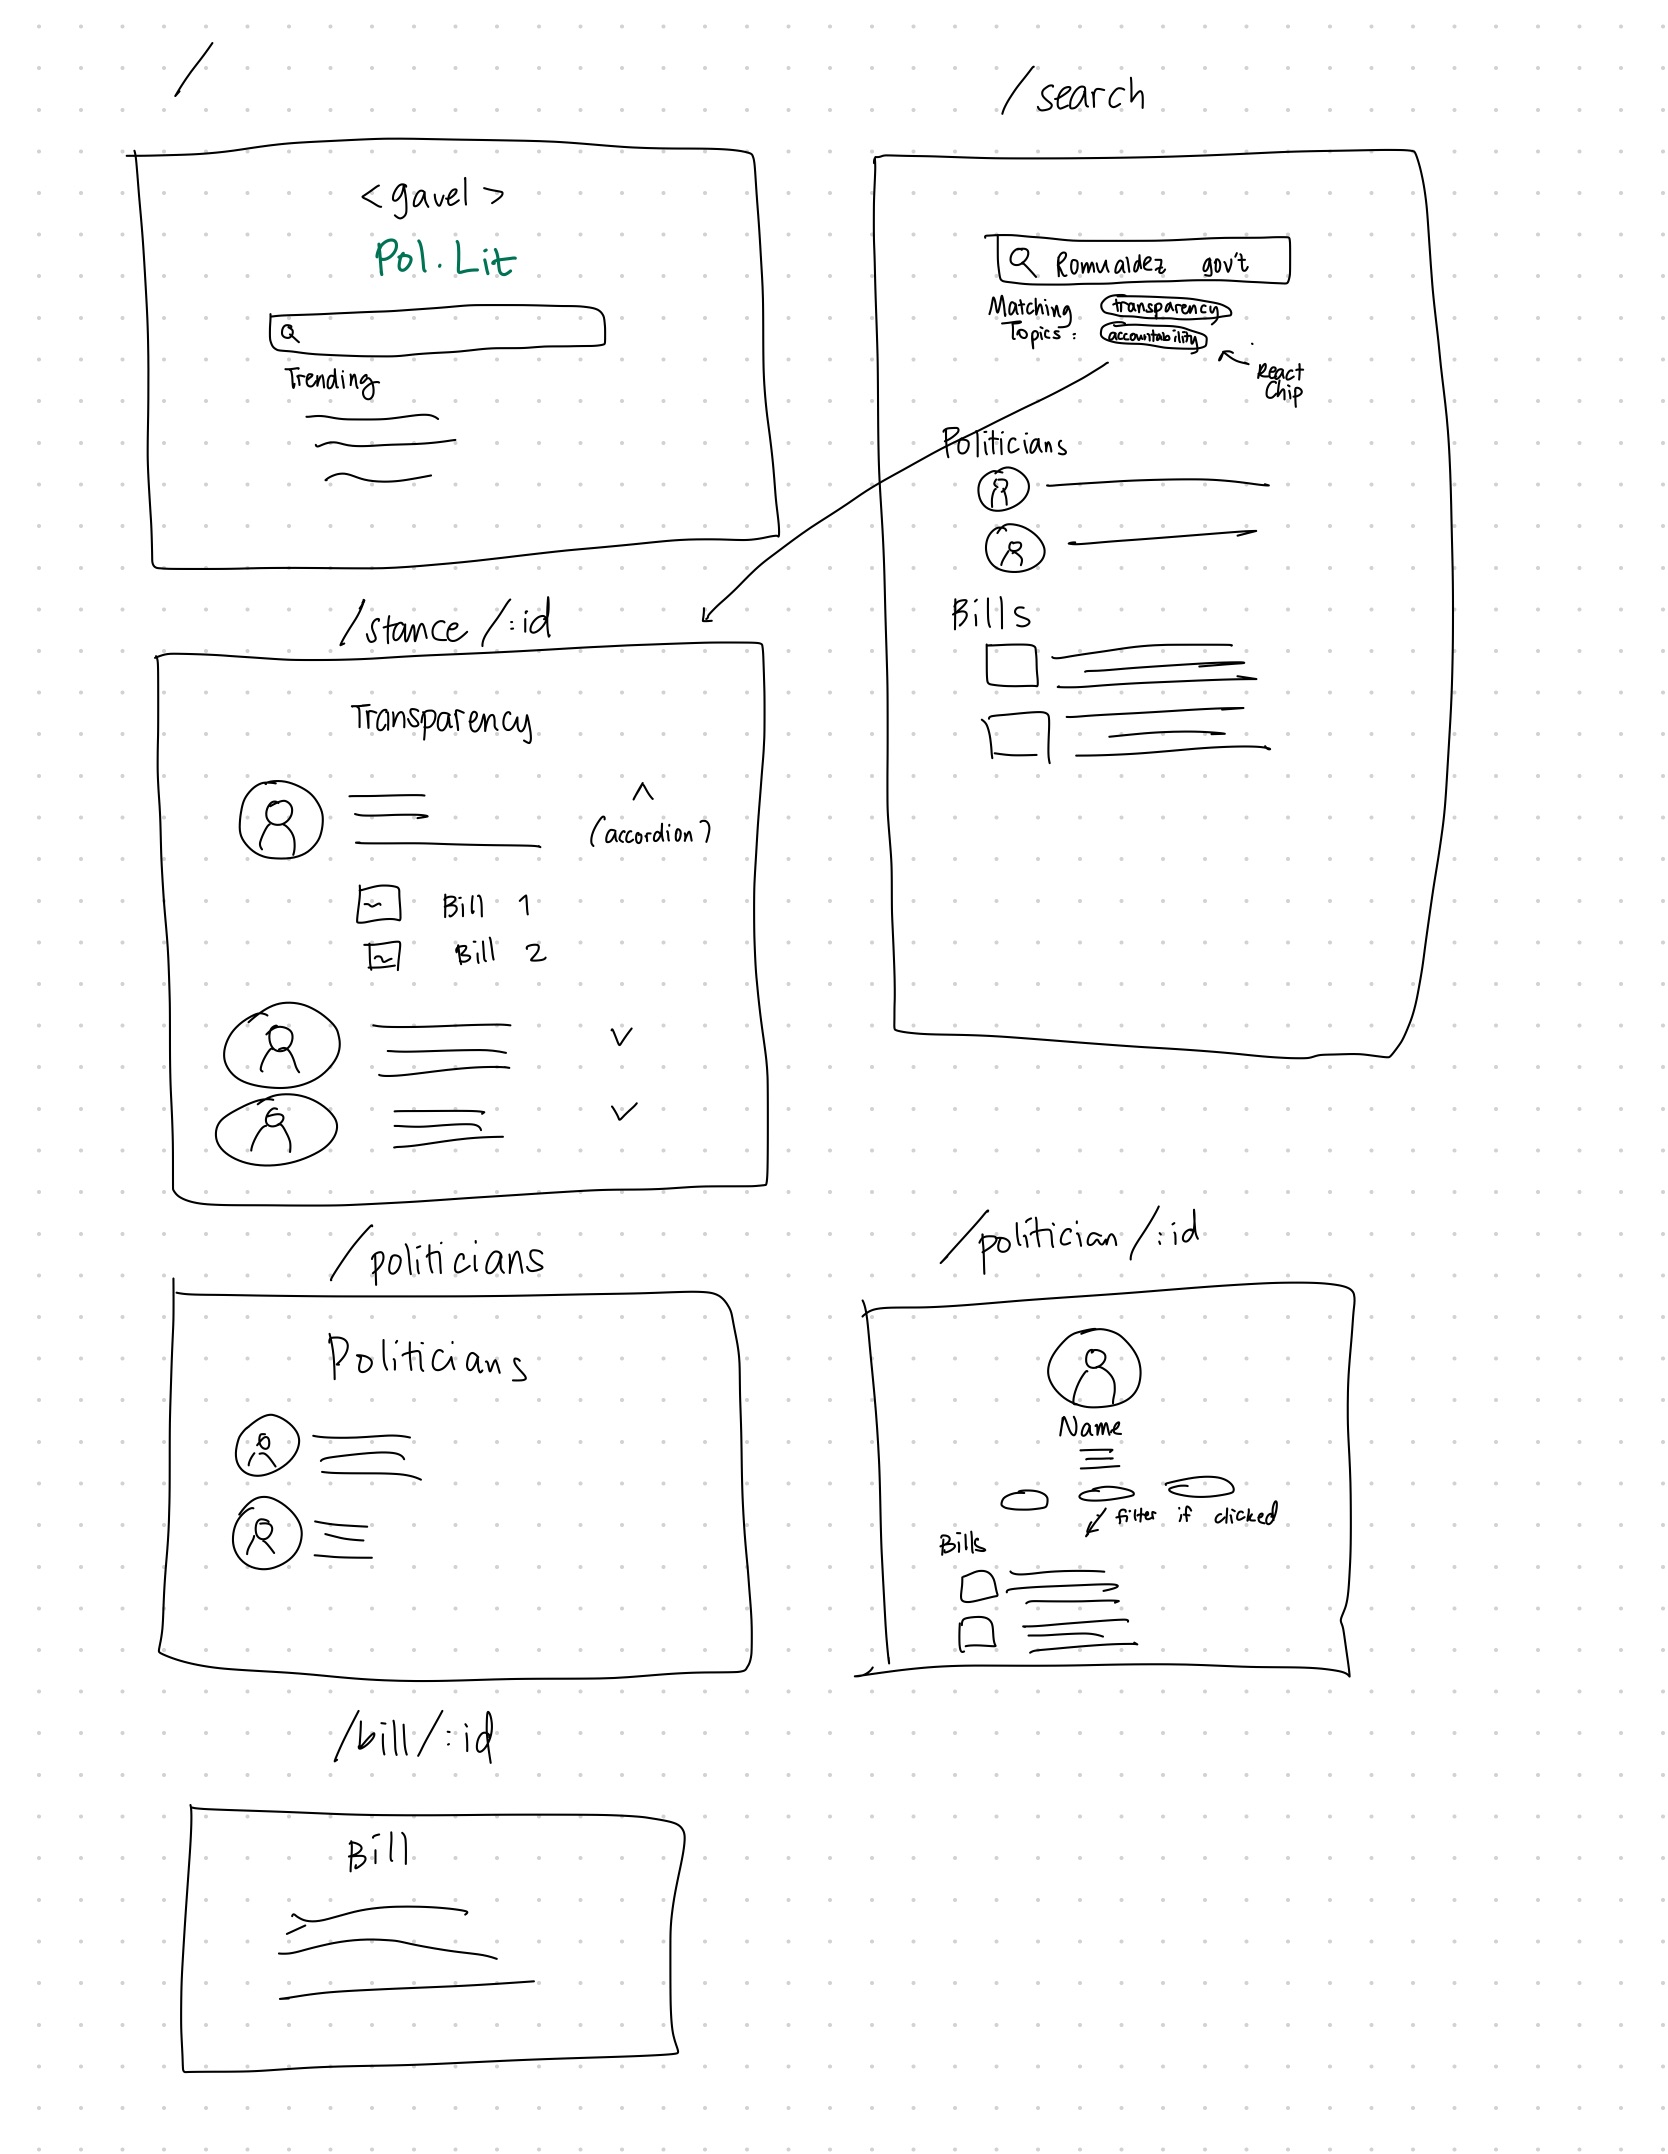 /
<gavel>
Pol.Lit
Trending
/search
Romualdez gov't
Matching
Topics:
transparency
accountability
React
Chip
Politicians
Bills
/stance/:id
Transparency
(accordion)
Bill 1
Bill 2
/politicians
Politicians
/politician/:id
Name
filter if clicked
Bills
/bill/:id
Bill